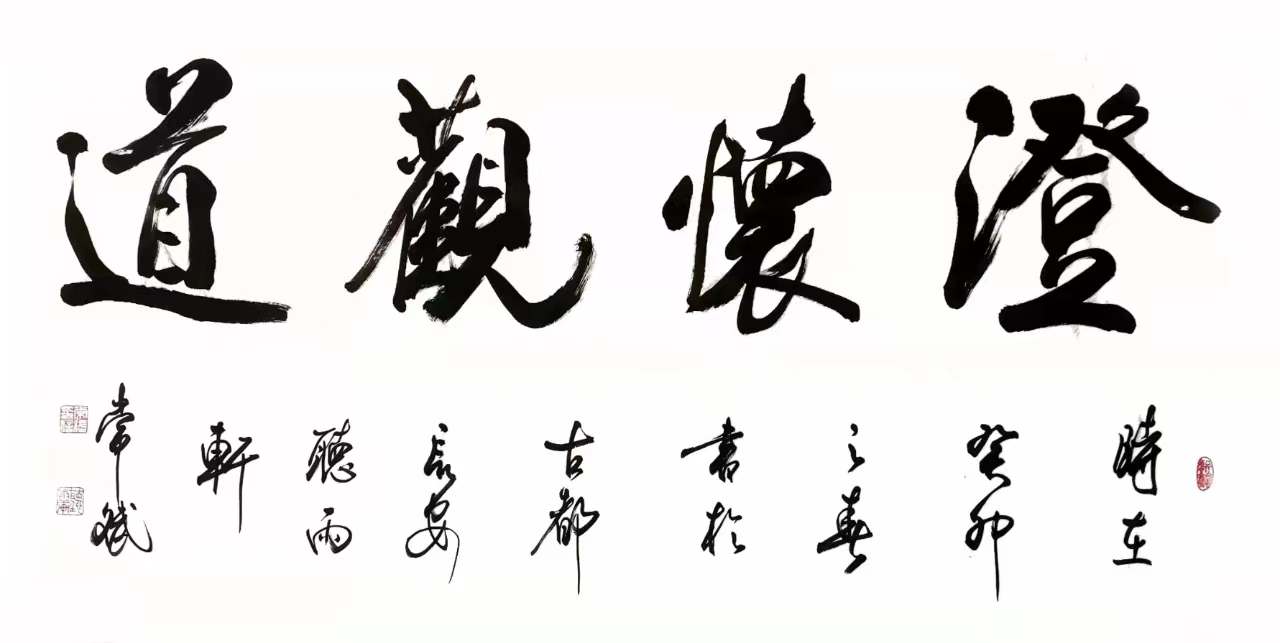 澄懷觀道
時在
癸卯
之春
書於
古都
長安
聽雨
軒
常斌